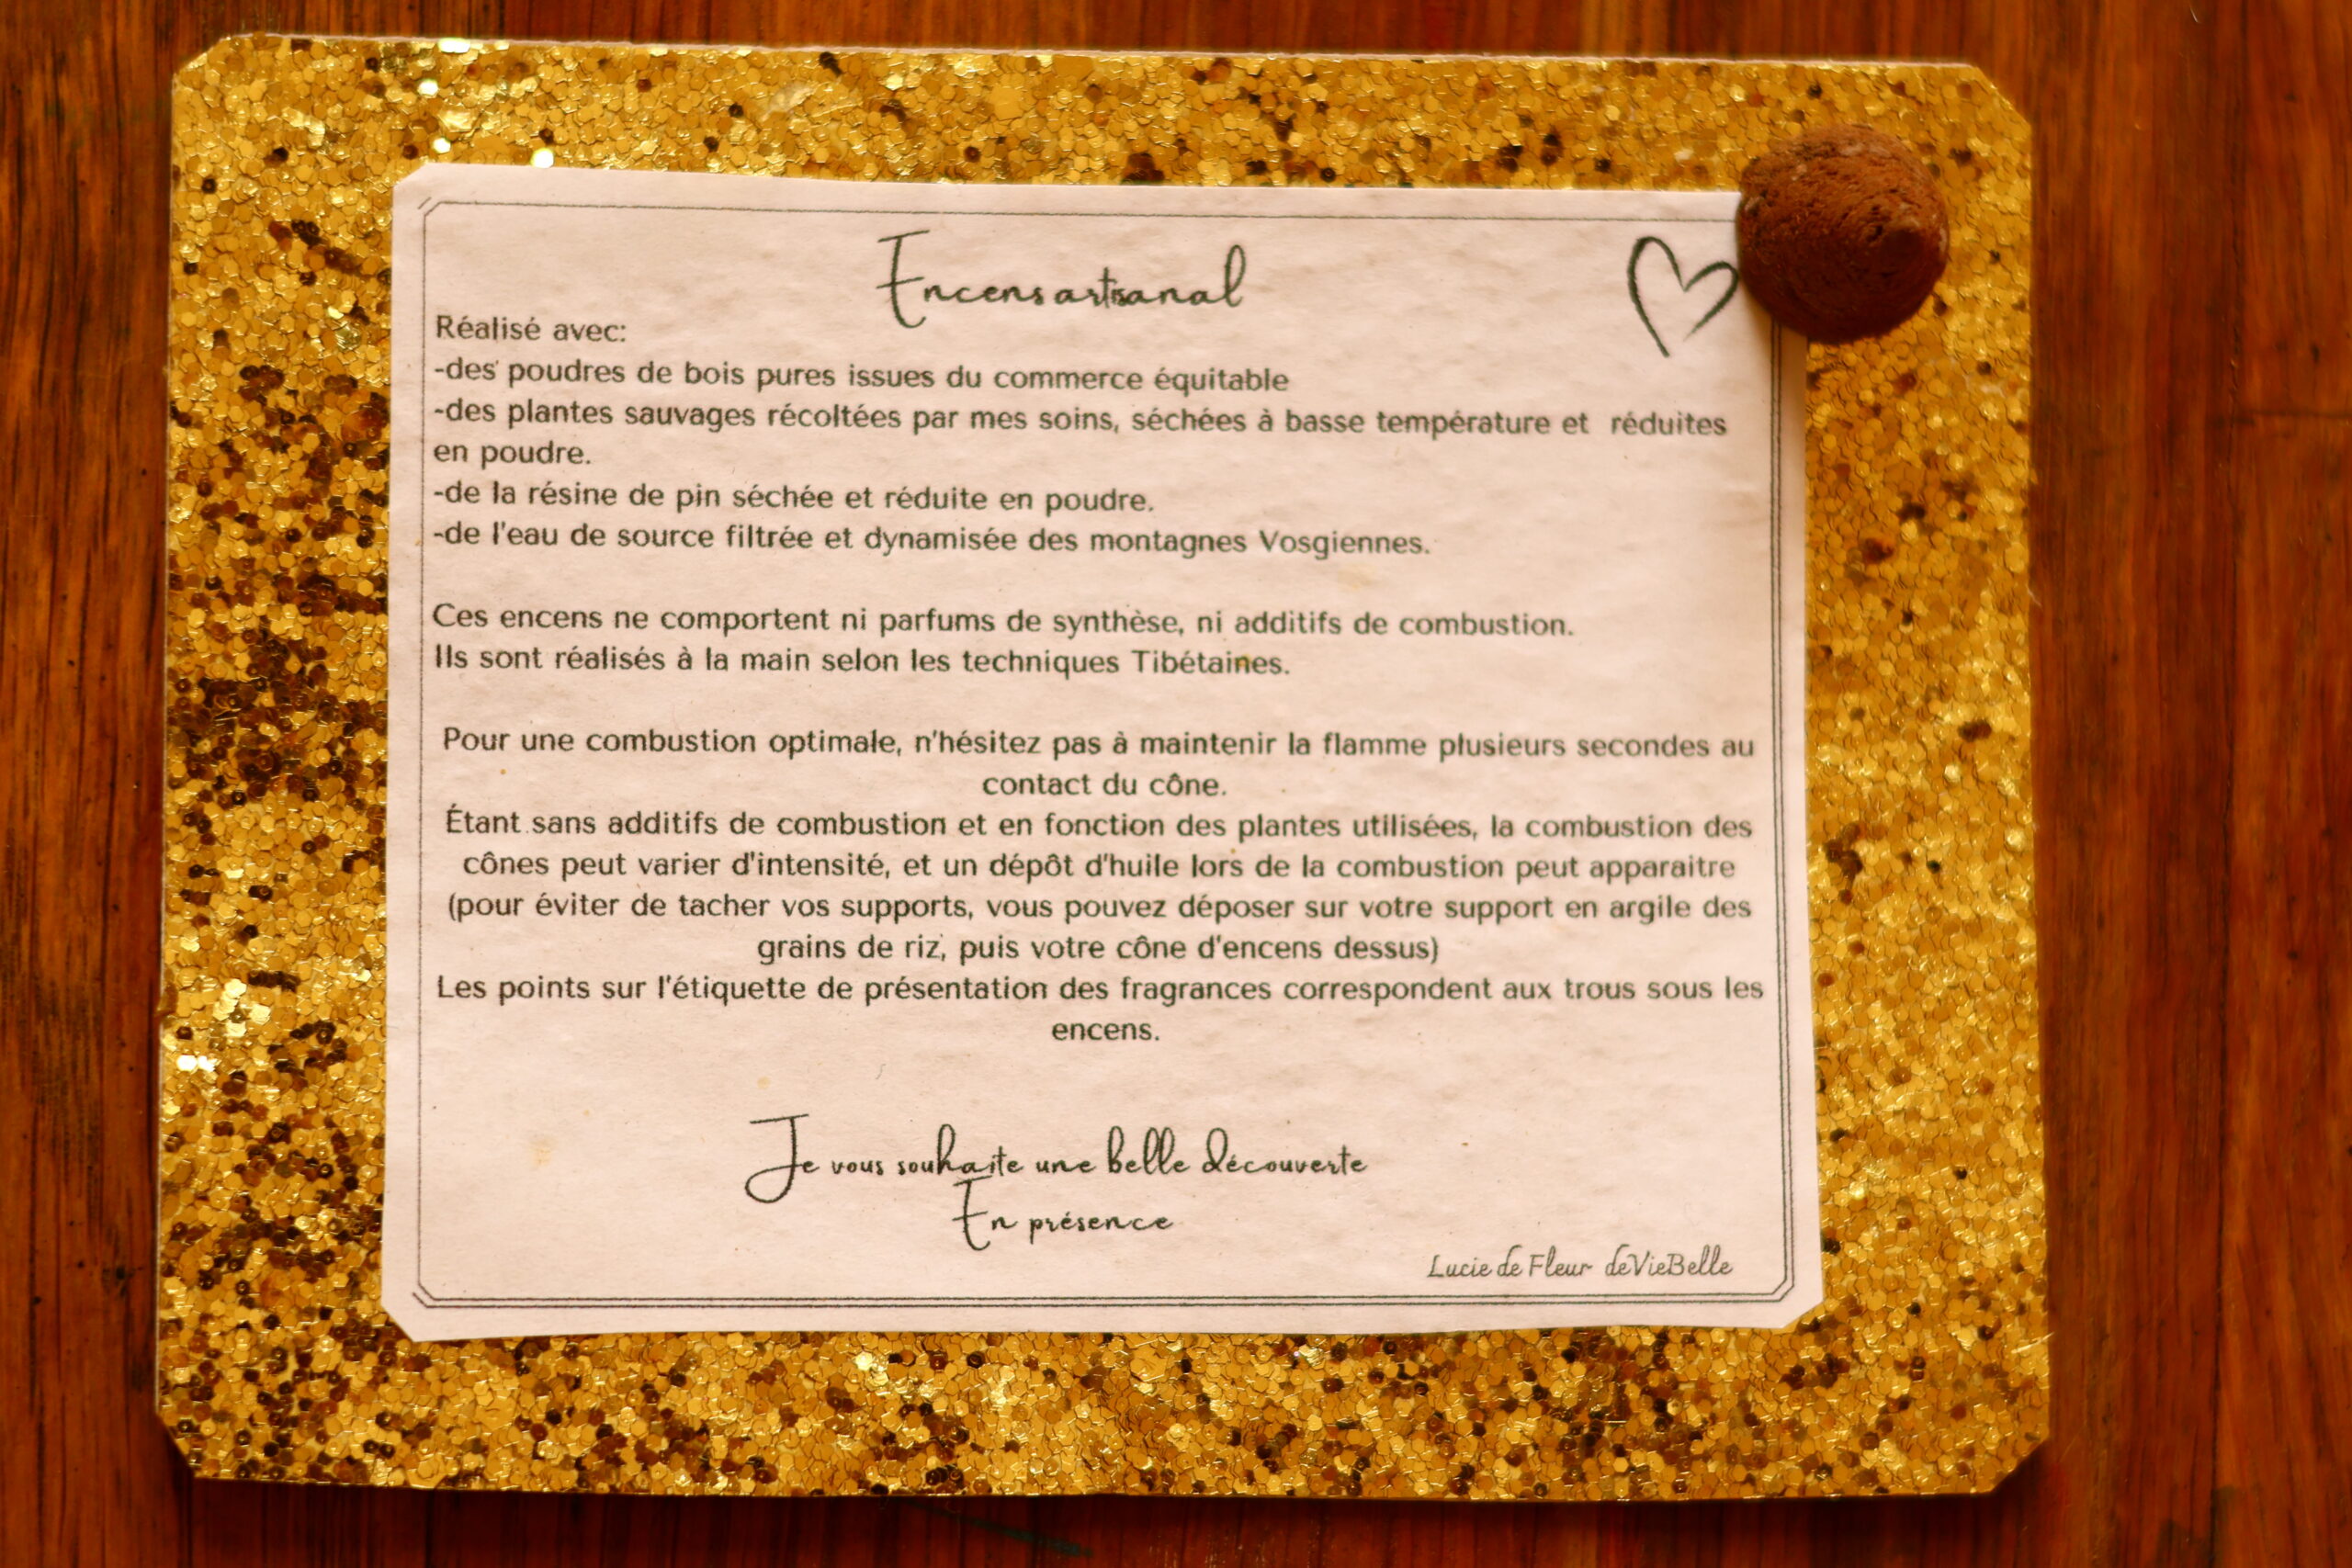 Encens artisanal
Réalisé avec:
-des poudres de bois pures issues du commerce équitable
-des plantes sauvages récoltées par mes soins, séchées à basse température et réduites
en poudre.
-de la résine de pin séchée et réduite en poudre.
-de l'eau de source filtrée et dynamisée des montagnes Vosgiennes.
Ces encens ne comportent ni parfums de synthèse, ni additifs de combustion.
Ils sont réalisés à la main selon les techniques Tibétaines.
Pour une combustion optimale, n'hésitez pas à maintenir la flamme plusieurs secondes au
contact du cône.
Étant sans additifs de combustion et en fonction des plantes utilisées, la combustion des
cônes peut varier d'intensité, et un dépôt d'huile lors de la combustion peut apparaitre
(pour éviter de tacher vos supports, vous pouvez déposer sur votre support en argile des
grains de riz, puis votre cône d'encens dessus)
Les points sur l'étiquette de présentation des fragrances correspondent aux trous sous les
encens.
Je vous souhaite une belle découverte
En présence
Lucie de Fleur deVieBelle